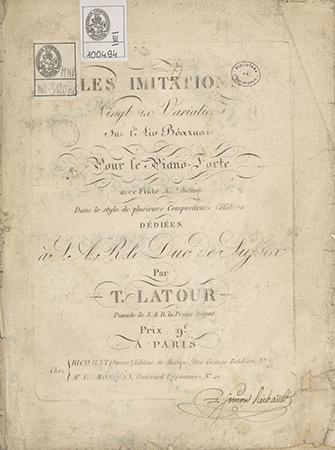 III
100494
LES IMITATIONS
Vingt six Variations
Sur l'Air Béarnais
Pour le Piano-Forte
avec Flûte Ad Libitum
Dans le style de plusieurs Compositeurs Célèbres
DÉDIÉES
à S. A. R. le Duc de Sussex
Par
T. LATOUR
Pianiste de S. A. R. le Prince Régent
Prix 9f
À PARIS
Chez
RICHAULT Editeur de Musique, Rue Grange Batelière, N°
Boulevard Poissonnière, N° 20